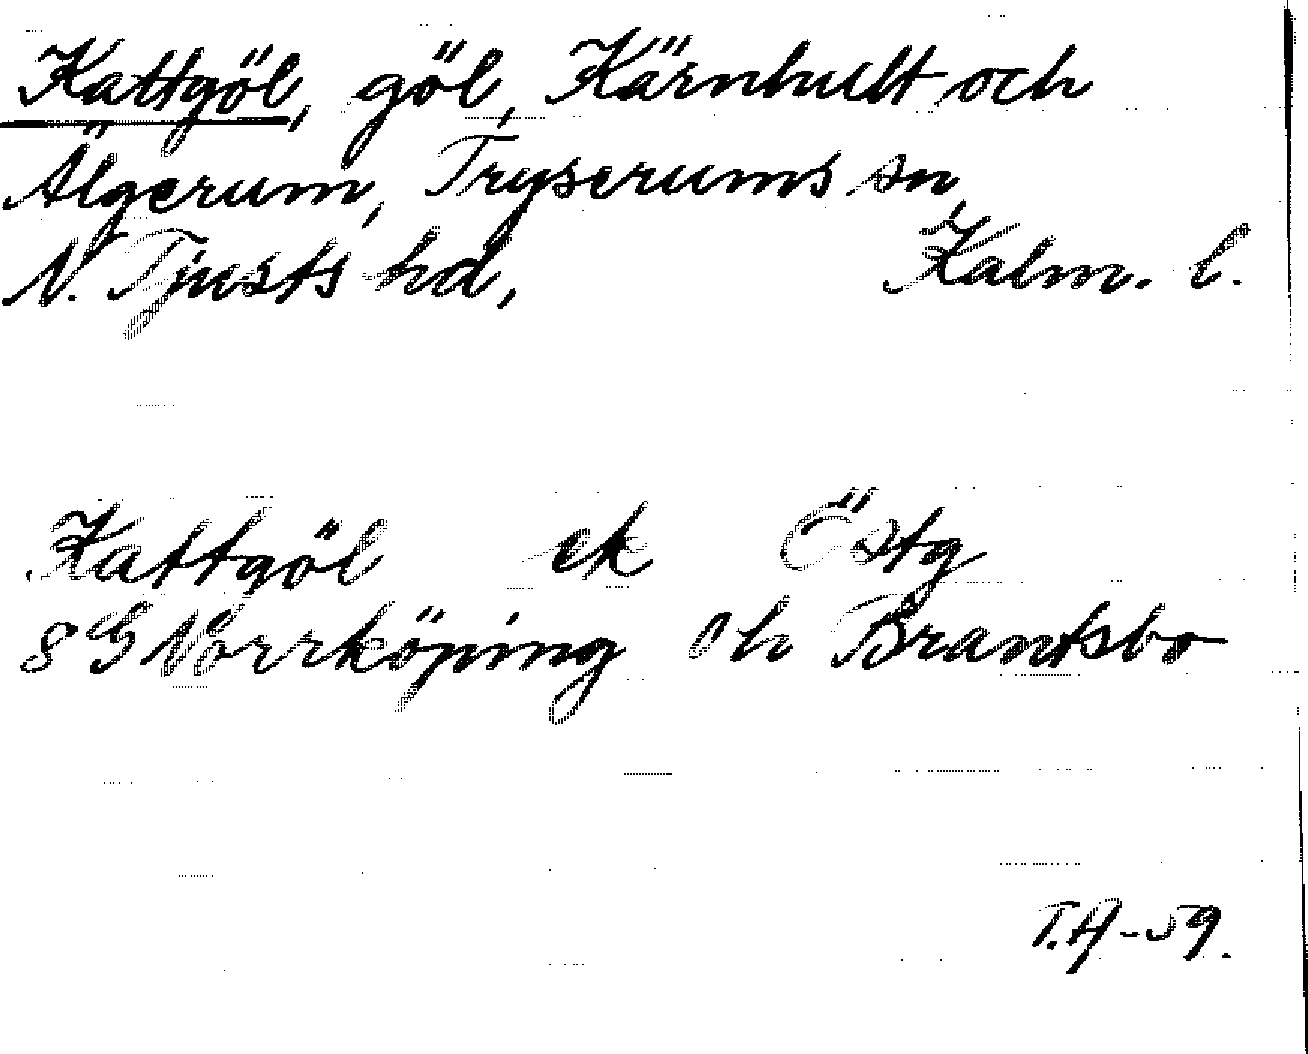 Kattgöl, göl, Kärnhult och
Älgerum, Tryserums sn,
N. Tjusts hd, Kalm. l.
Kattgöl ek Östg
8G Norrköping 0h Brantsbo
T.A-59.